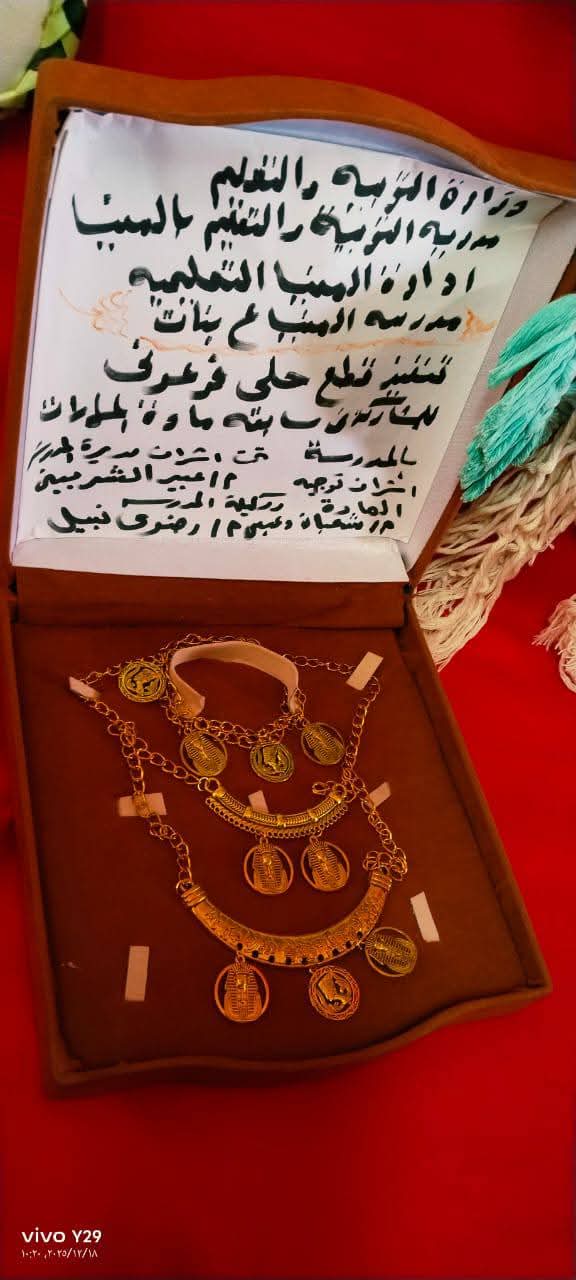 وزارة التربيه والتعليم
مدريه التربية والتعليم بالمنيا
ادارة المنيا التعلميه
مدرسه المنيا ع بنات
تنفيذ قطع حلى فرعونى
للمشاركة فى سابقه مادة المهارات
بالمدرسة تحت اشراف مديرة المدرسة
اشراف توجيه م/ عبير الشربينى
المادة ووكيلة المدرسه
م/ شعبان م/ رضوى نبيل
vivo Y29
٢٠٢٥/١٢/١٨, ١٠:٢٠